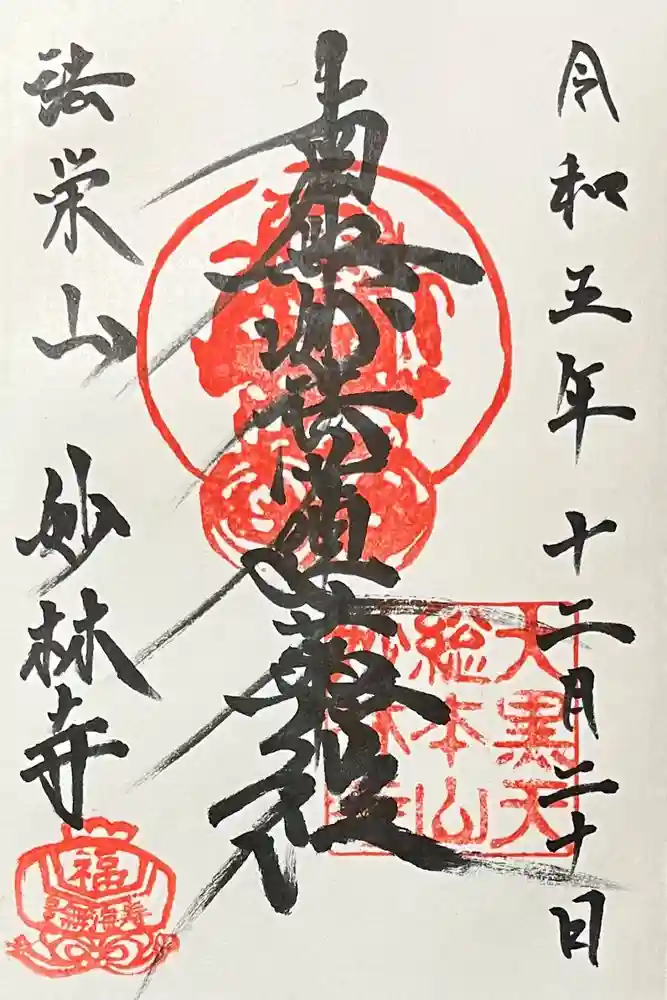 令和五年十二月二十日
南無妙法蓮華経
大黒天
総本山
妙林寺
法栄山 妙林寺
福
寿海無量